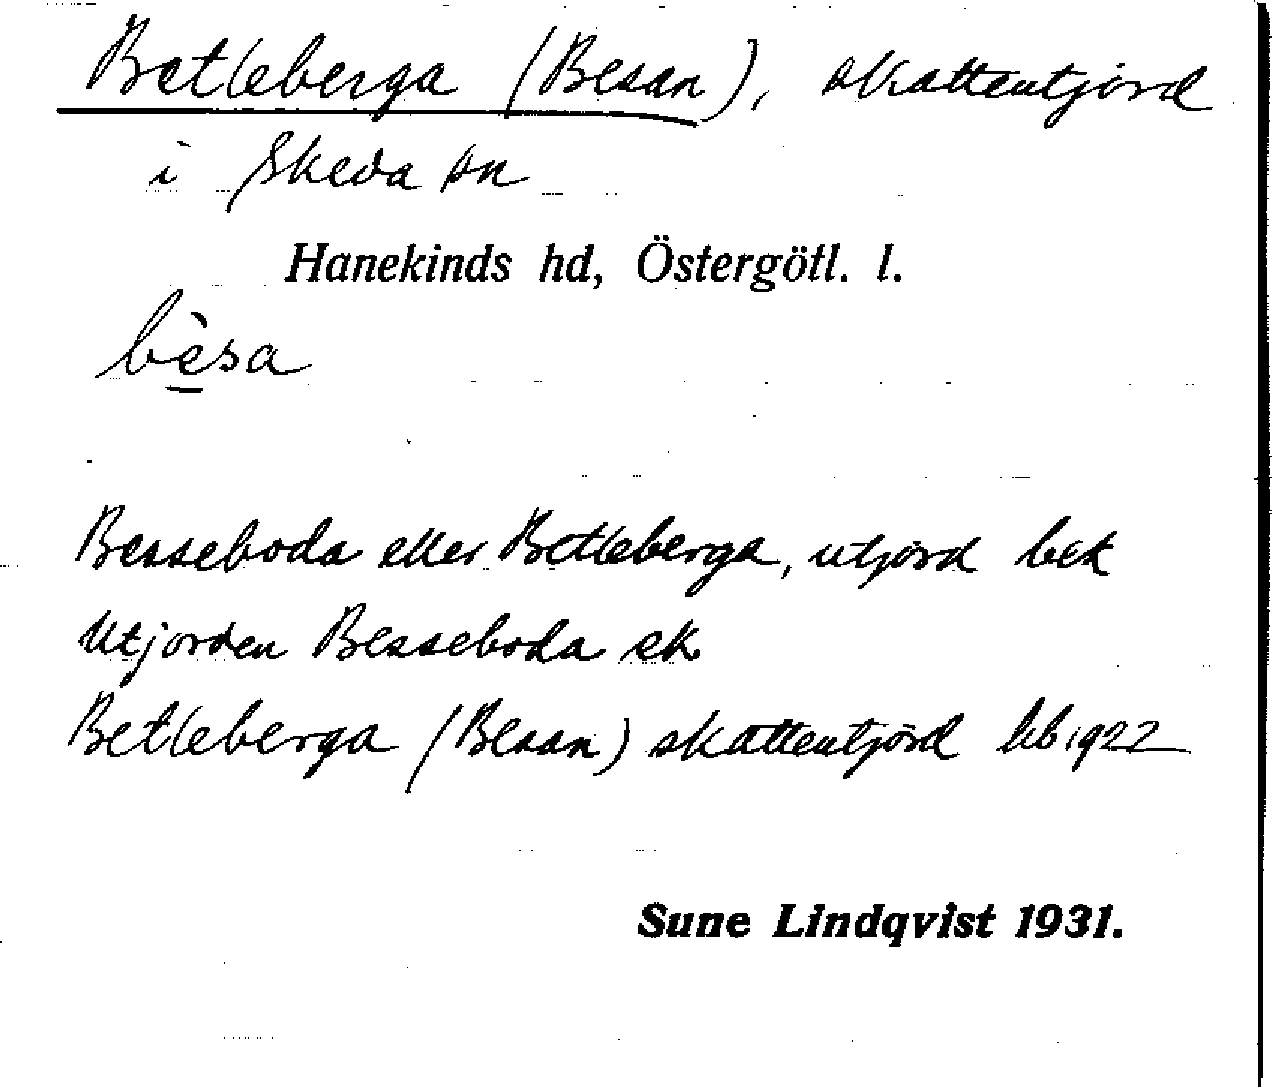 Betleberga (Besan), skatteutjord
i Skeda sn
Hanekinds hd, Östergötl. l.
bèsa
Besseboda eller Betleberga, utjord bek
Utjorden Besseboda ek
Betleberga (Besan) skatteutjord hb 1922
Sune Lindqvist 1931.